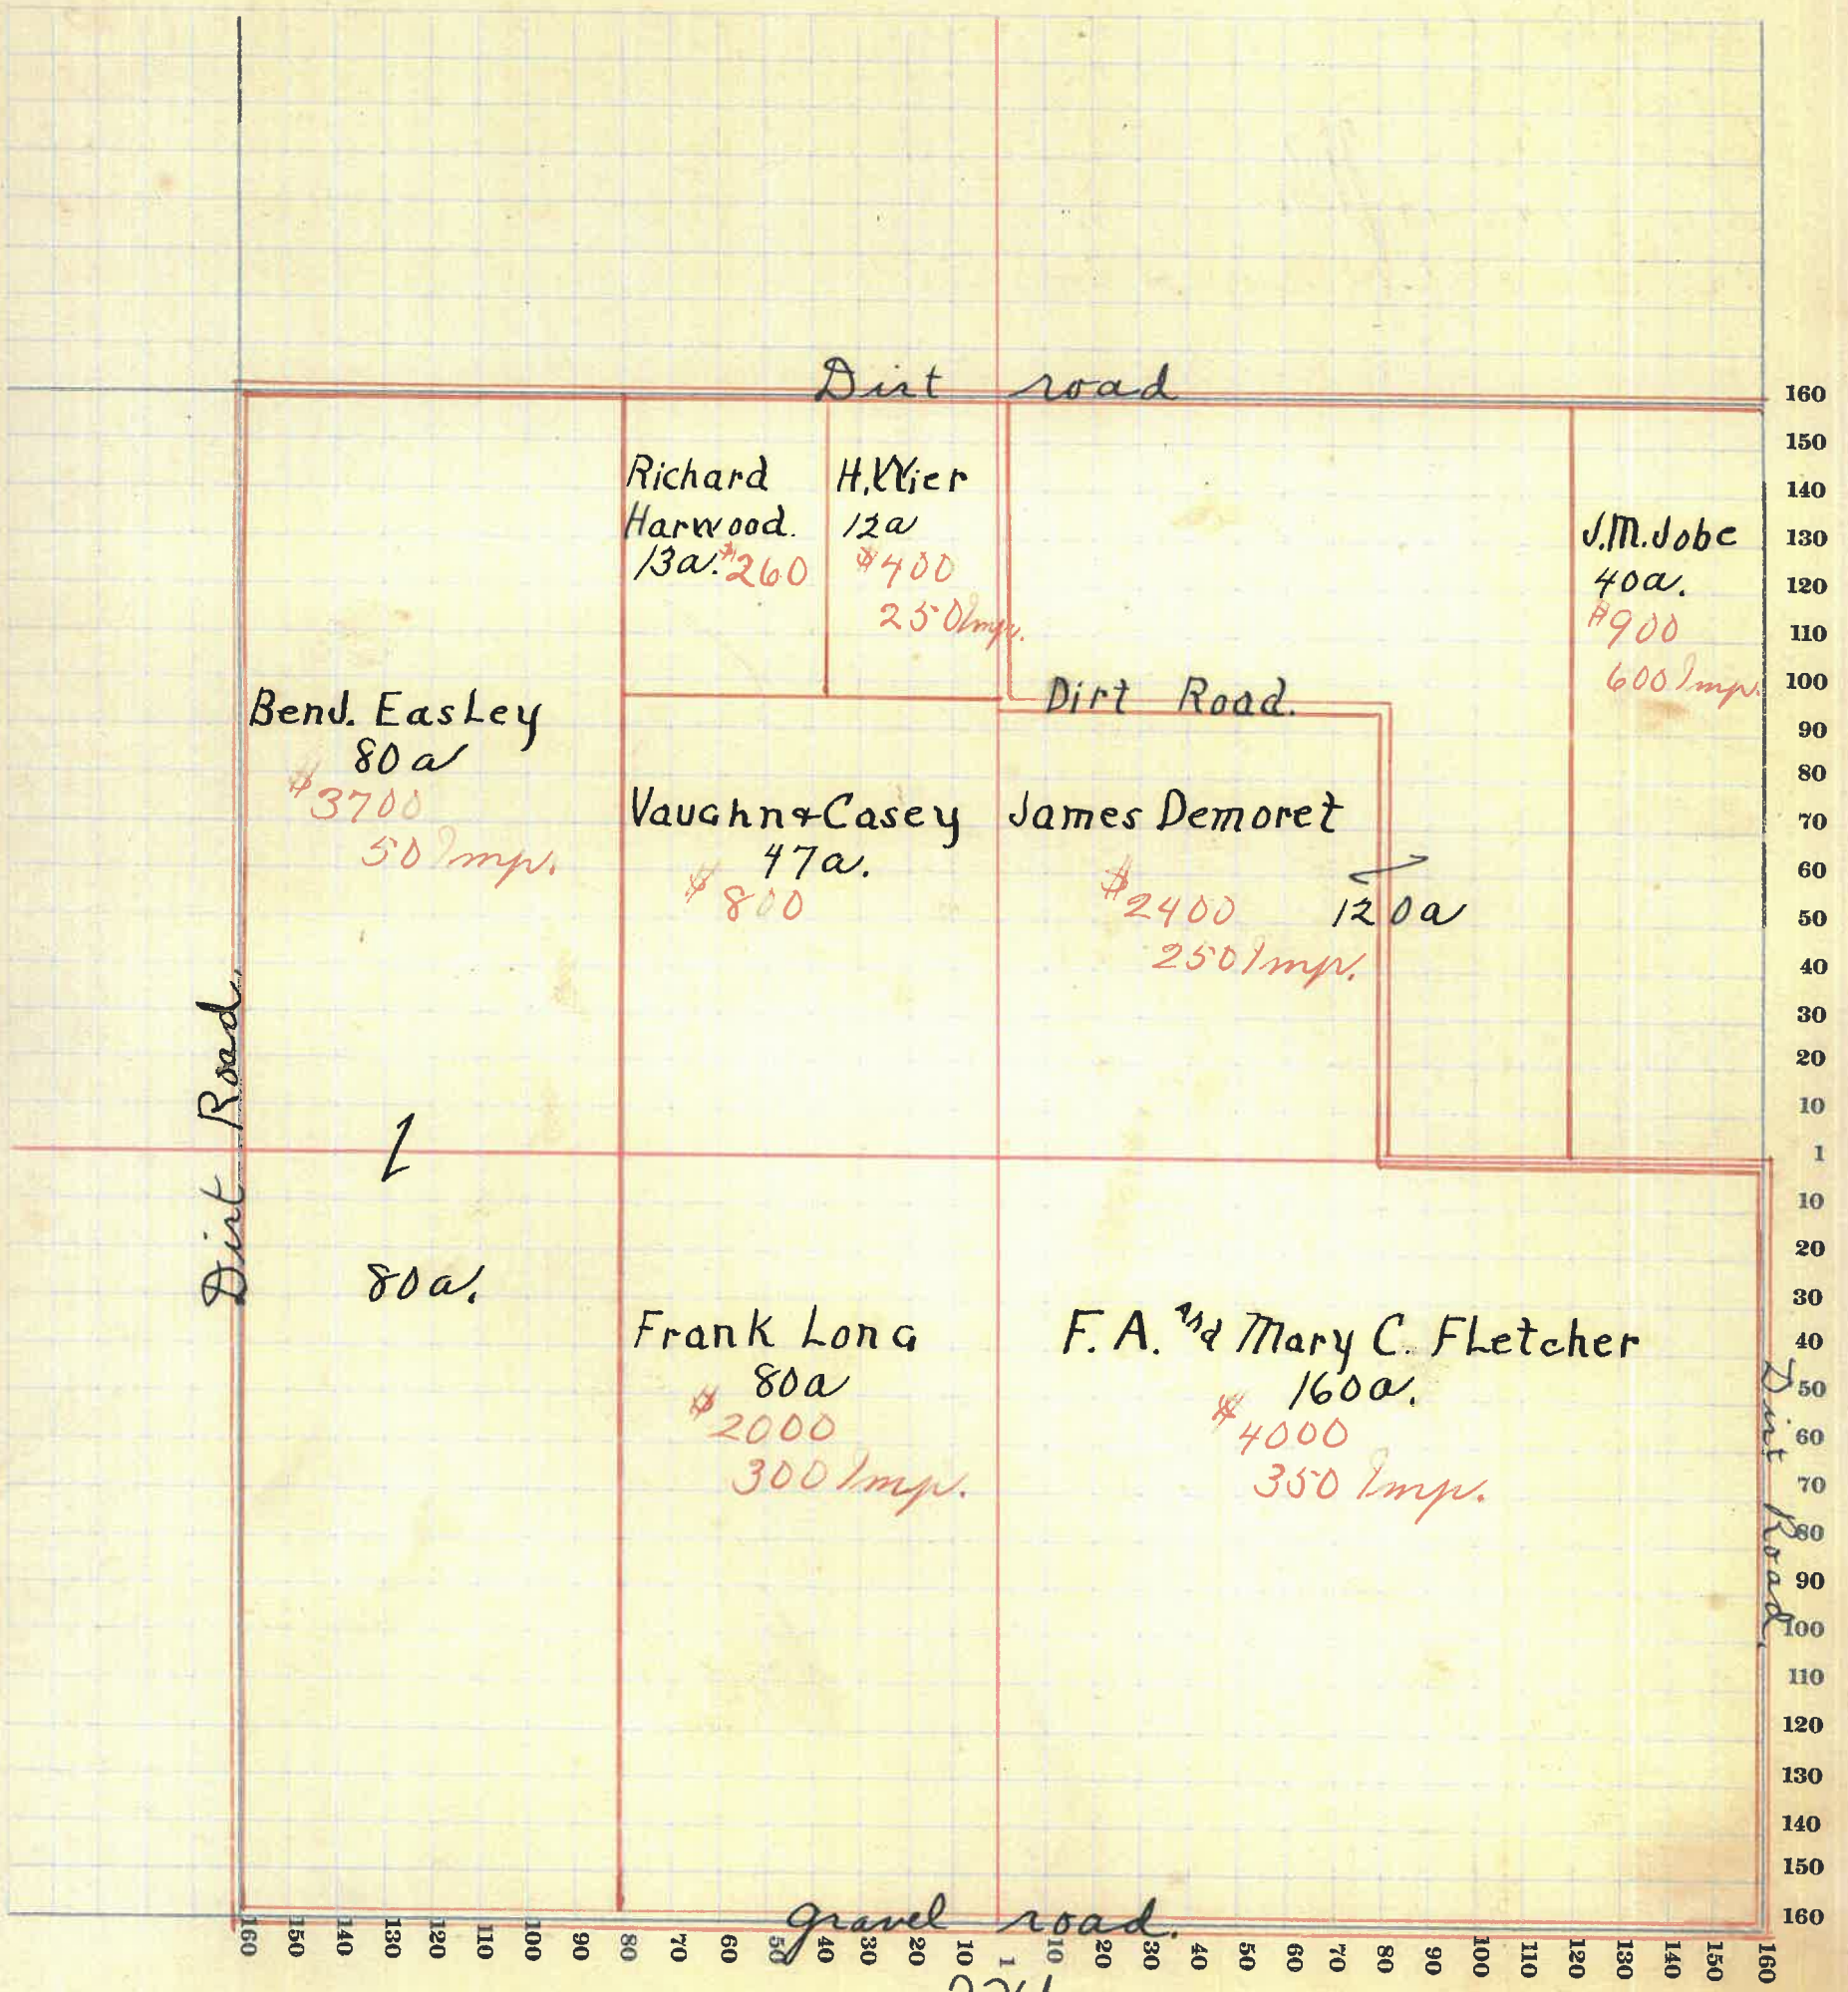 Dirt road
Richard
Harwood.
13a. $260
H. Wier
12a
$400
250 Imp.
J.M. Jobe
40a.
$900
600 Imp.
Dirt Road.
BenJ. Easley
80a
$3700
50 Imp.
Vaughn & Casey
47a.
$800
James Demoret
120a
$2400
250 Imp.
Dirt Road.
80a.
Frank Long
80a
$2000
300 Imp.
F. A. and Mary C. Fletcher
160a.
$4000
350 Imp.
Dirt Road.
gravel road.
160
150
140
130
120
110
100
90
80
70
60
50
40
30
20
10
1
10
20
30
40
50
60
70
80
90
100
110
120
130
140
150
160
160 150 140 130 120 110 100 90 80 70 60 50 40 30 20 10 1 10 20 30 40 50 60 70 80 90 100 110 120 130 140 150 160